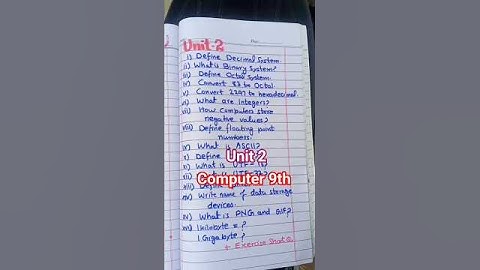 Unit-2
i) Define Decimal System.
ii) What is Binary System?
iii) Define Octal System.
iv) Convert 83 to Octal.
v) Convert 2297 to hexadecimal.
vi) What are integers?
vii) How computers store
negative values?
viii) Define floating point
numbers.
ix) What is ASCII?
x) Define
Unit 2
xi) What is UTF-
xii)
Computer 9th
xiii) Define
xiv) Write name of data storage
devices.
xv) What is PNG and GIF?
xvi) 1 kilobyte = ?
1 Gigabyte ?
+ Exercise Short Q